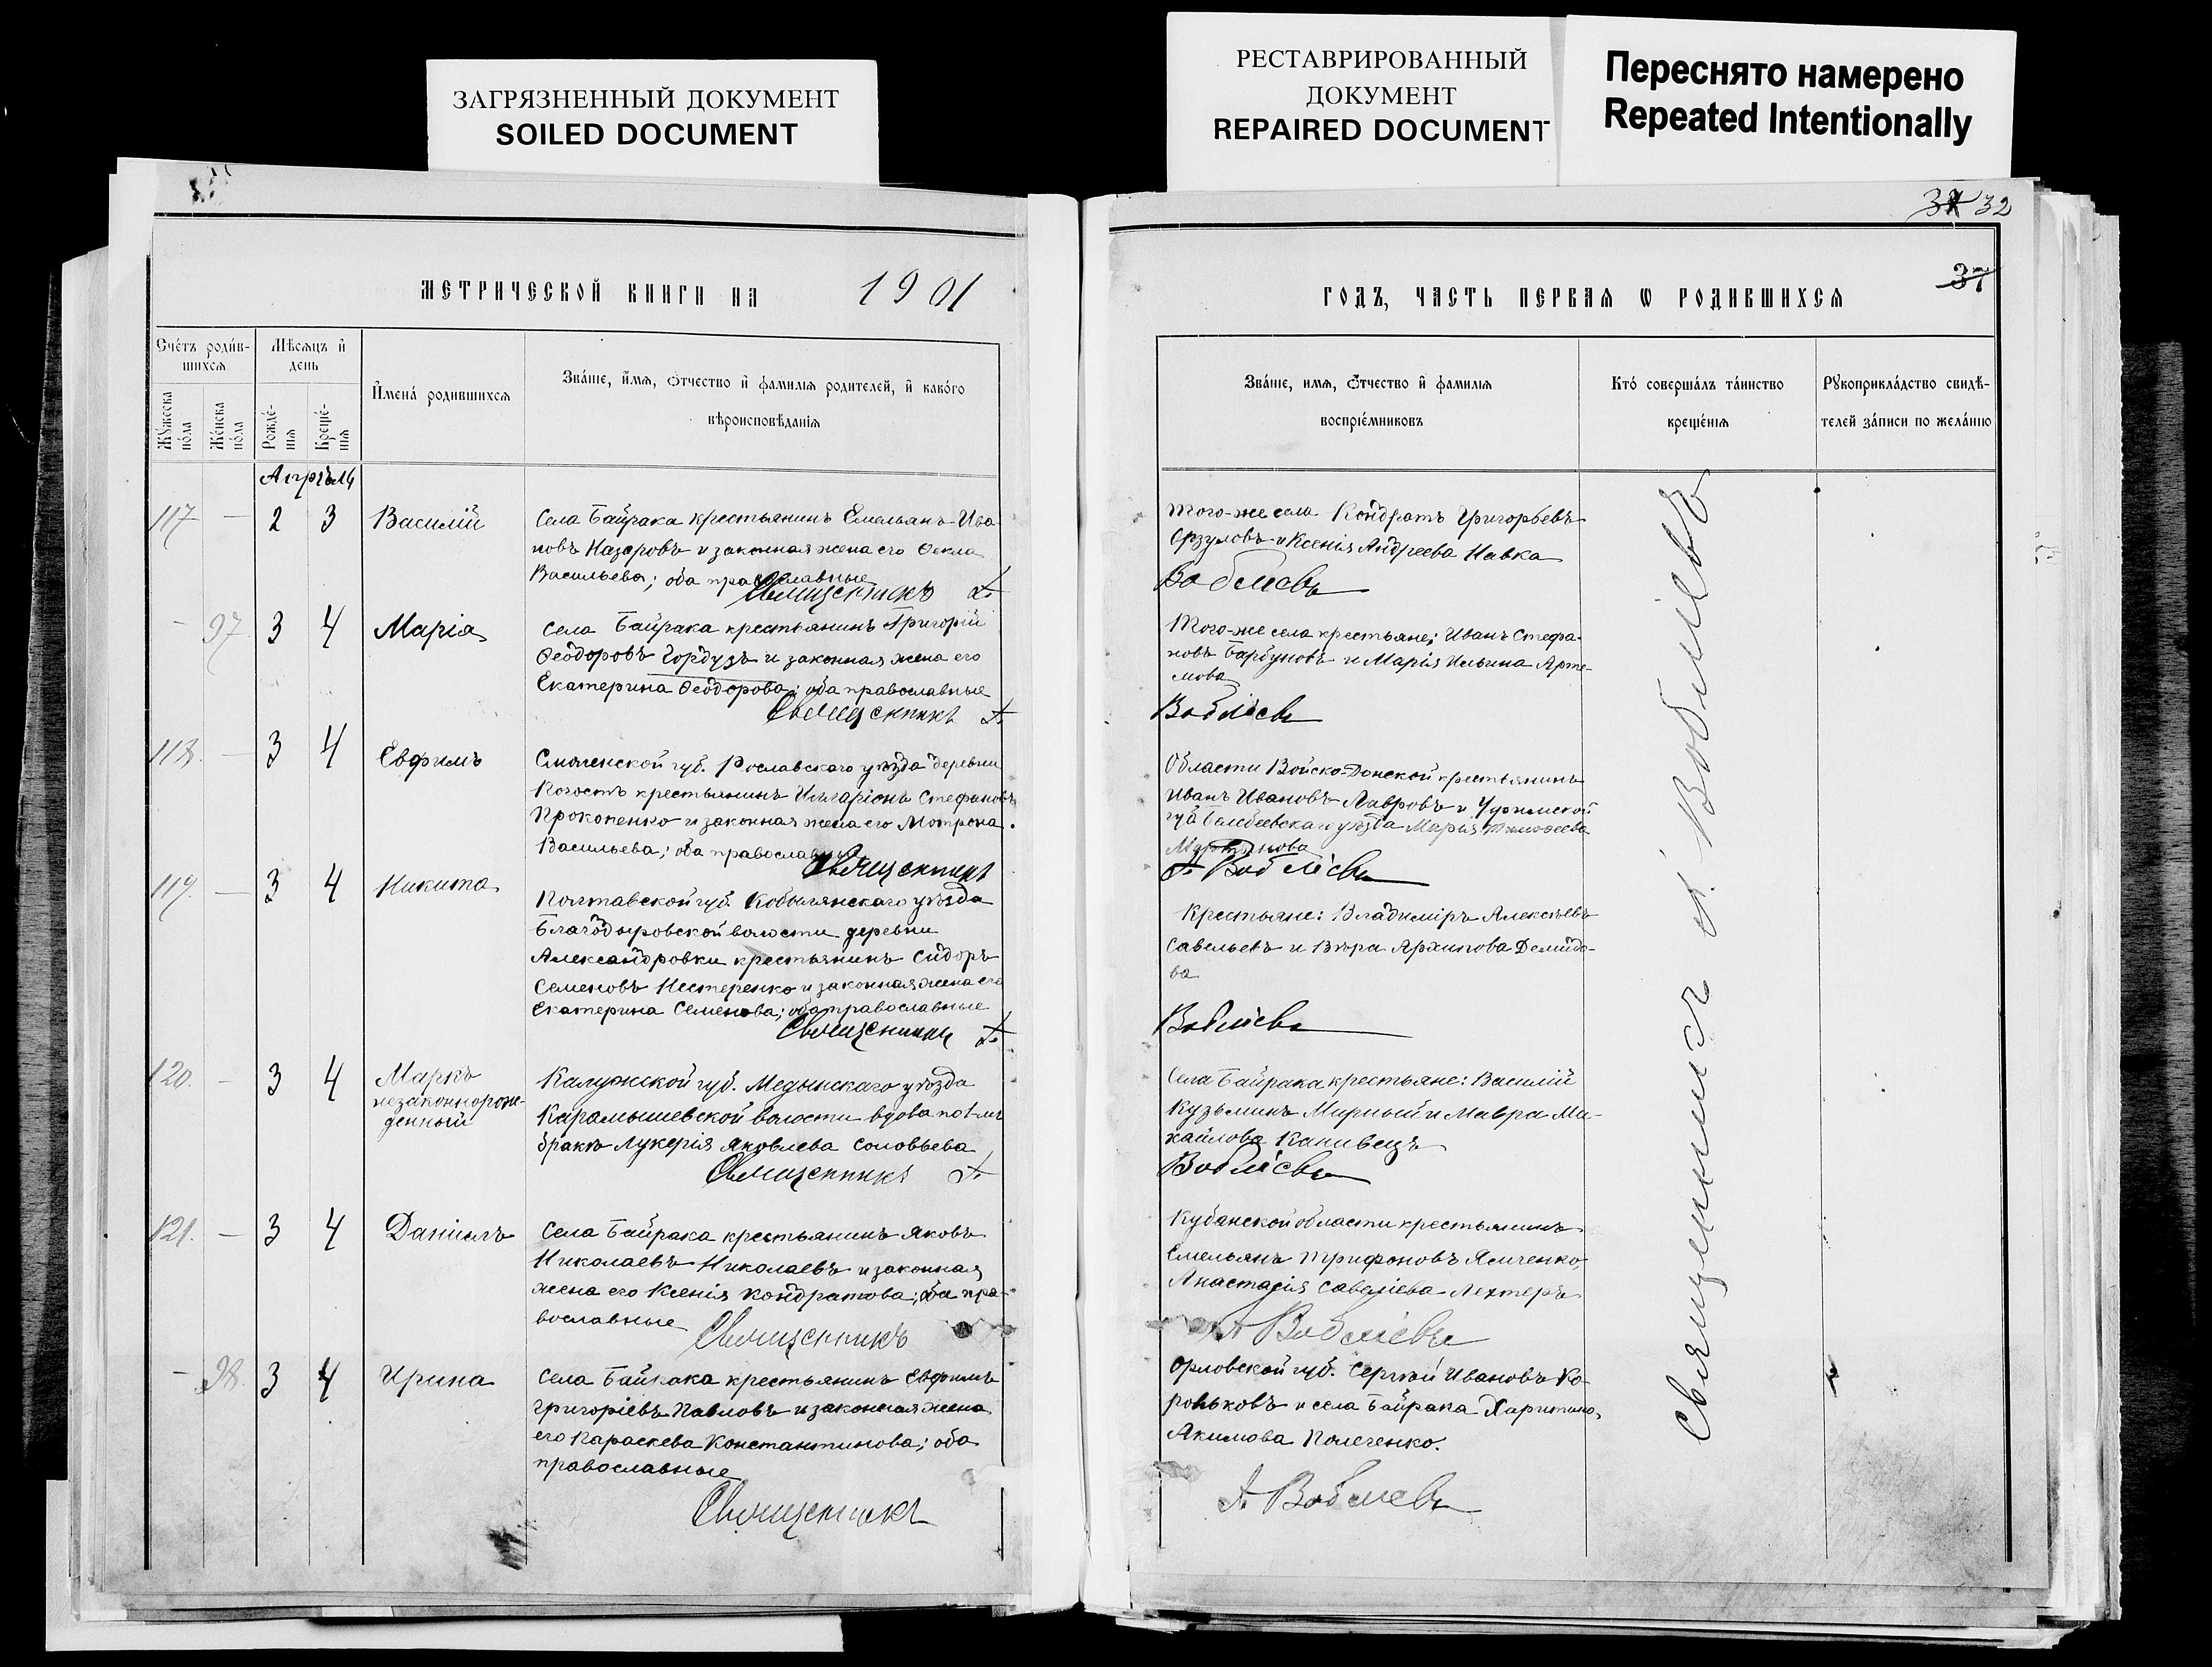 ЗАГРЯЗНЕННЫЙ ДОКУМЕНТ
SOILED DOCUMENT
РЕСТАВРИРОВАННЫЙ
ДОКУМЕНТ
REPAIRED DOCUMENT
Переснято намерено
Repeated Intentionally
32
37
МЕТРИЧЕСКОЙ КНИГИ НА 1901
ГОДЪ, ЧАСТЬ ПЕРВАЯ Ѡ РОДИВШИХСЯ
Счётъ родив-
шихся
Мужеска
пола
Женска
пола
Мѣсяцъ и
день
Рожде-
нія
Креще-
нія
Имена родившихся
Званіе, имя, отчество и фамилія родителей, и какого
вѣроисповѣданія
Званіе, имя, отчество и фамилія
воспріемниковъ
Кто совершалъ таинство
крещенія
Рукоприкладство свидѣ-
телей записи по желанію
Апрѣль
117 — 2 3 Василій
Села Байрака крестьянинъ Емельянъ Ива-
новъ Назаровъ и законная жена его Ѳекла
Васильева; оба православные
Священникъ А.
Того-же села Кондратъ Григорьевъ
Арзуловъ и Ксенія Андреева Навка
Воблiевъ
— 97 3 4 Марія
Села Байрака крестьянинъ Григорій
Ѳеодоровъ Гордузъ и законная жена его
Екатерина Ѳеодорова; оба православные
Священникъ А.
Того-же села крестьяне; Иванъ Стефа-
новъ Барбуновъ и Марія Ильина Арте-
мова
Воблiевъ
118. — 3 4 Евфимъ
Смоленской губ. Рославскаго уѣзда деревни
Погостъ крестьянинъ Илларіонъ Стефановъ
Прокопенко и законная жена его Мотрона
Васильева; оба православные
Священникъ
Области Войска-Донской крестьянинъ
Иванъ Ивановъ Лавровъ и Уфимской
губ. Белебеевскаго уѣзда Марія Тимоѳеева
А. Воблiевъ
119. — 3 4 Никита
Полтавской губ. Кобылянскаго уѣзда
волости деревни
Александровки крестьянинъ Сидоръ
Семеновъ Нестеренко и законная жена его
Екатерина Семенова; оба православные
Священникъ А.
Крестьяне: Владиміръ Алексѣевъ
Савельевъ и Вѣра Архипова Демидо-
ва
Воблiевъ
120. — 3 4 Маркъ
незаконнорож-
денный
Калужской губ. Медынскаго уѣзда
Карамышевской волости вдова по 1-мъ
бракѣ Лукерія Яковлева Соловьева
Священникъ А.
Села Байрака крестьяне: Василій
Кузьминъ Мирный и Мавра Ми-
хайлова Канивецъ
Воблiевъ
121. — 3 4 Даніилъ
Села Байрака крестьянинъ Яковъ
Николаевъ Николаевъ и законная
жена его Ксенія Кондратова; оба пра-
вославные
Священникъ
Кубанской области крестьянинъ
Емельянъ Трифоновъ Яличенко,
Анастасія Савеліева Лехтеръ
А Воблiевъ
— 98. 3 4 Ирина
Села Байрака крестьянинъ Евфимъ
Григоріевъ Павловъ и законная жена
его Параскева Константинова; оба
православные
Священникъ
Орловской губ. Сергѣй Ивановъ Ко-
роньковъ и села Байрака Харитина,
Акимова Полеченко.
А. Воблiевъ
Священникъ А. Воблiевъ